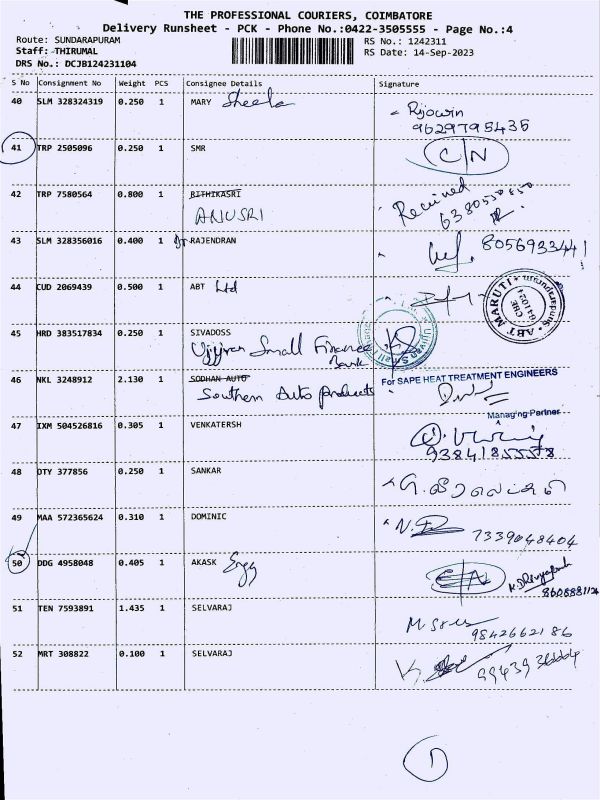 THE PROFESSIONAL COURIERS, COIMBATORE
Delivery Runsheet - PCK - Phone No.:0422-3505555 - Page No.:4
Route: SUNDARAPURAM RS No.: 1242311
Staff: THIRUMAL RS Date: 14-Sep-2023
DRS No.: DCJB124231104
S No Consignment No Weight PCS Consignee Details Signature
40 SLM 328324319 0.250 1 MARY Sheela Rijowin
9629795435
41 TRP 2505096 0.250 1 SMR C/N
42 TRP 7580564 0.800 1 RITHIKASRI Received
ANUSRI
43 SLM 328356016 0.400 1 Dr RAJENDRAN 8056933441
44 CUD 2069439 0.500 1 ABT Ltd
ABT MARUTI
45 HRD 383517834 0.250 1 SIVADOSS
Ujjivan Small Finance
Bank
46 NKL 3248912 2.130 1 SODHAN AUTO For SAPE HEAT TREATMENT ENGINEERS
Southern Auto Products
Managing Partner
47 IXM 504526816 0.305 1 VENKATERSH
9384185558
48 OTY 377856 0.250 1 SANKAR
49 MAA 572365624 0.310 1 DOMINIC 7339048404
50 DDG 4958048 0.405 1 AKASK Engg
51 TEN 7593891 1.435 1 SELVARAJ
9842662186
52 MRT 308822 0.100 1 SELVARAJ
1